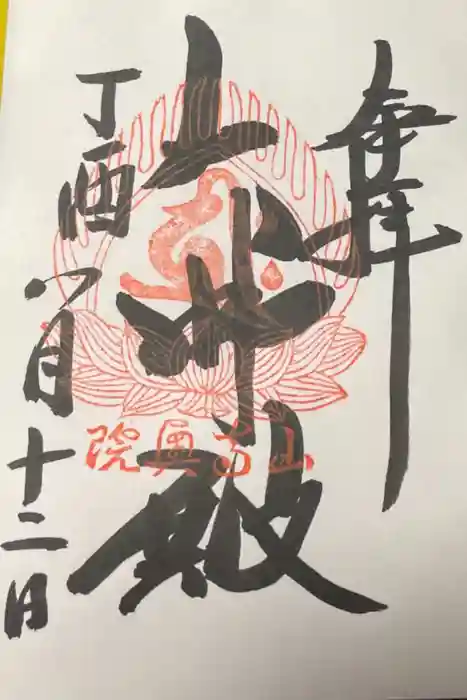 奉拝
大佛殿
山寺奥院
丁酉八月十二日